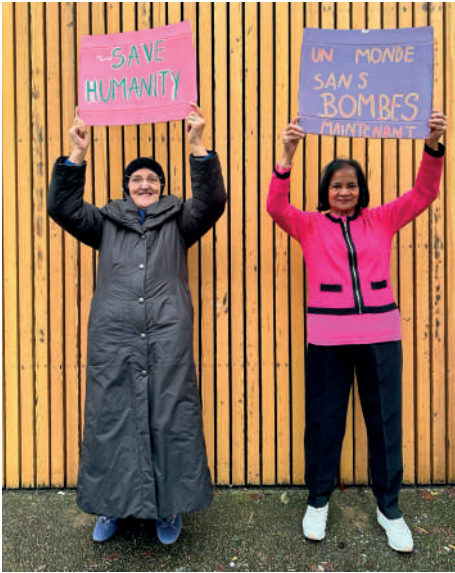 SAVE
HUMANITY
UN MONDE
SANS
BOMBES
MAINTENANT